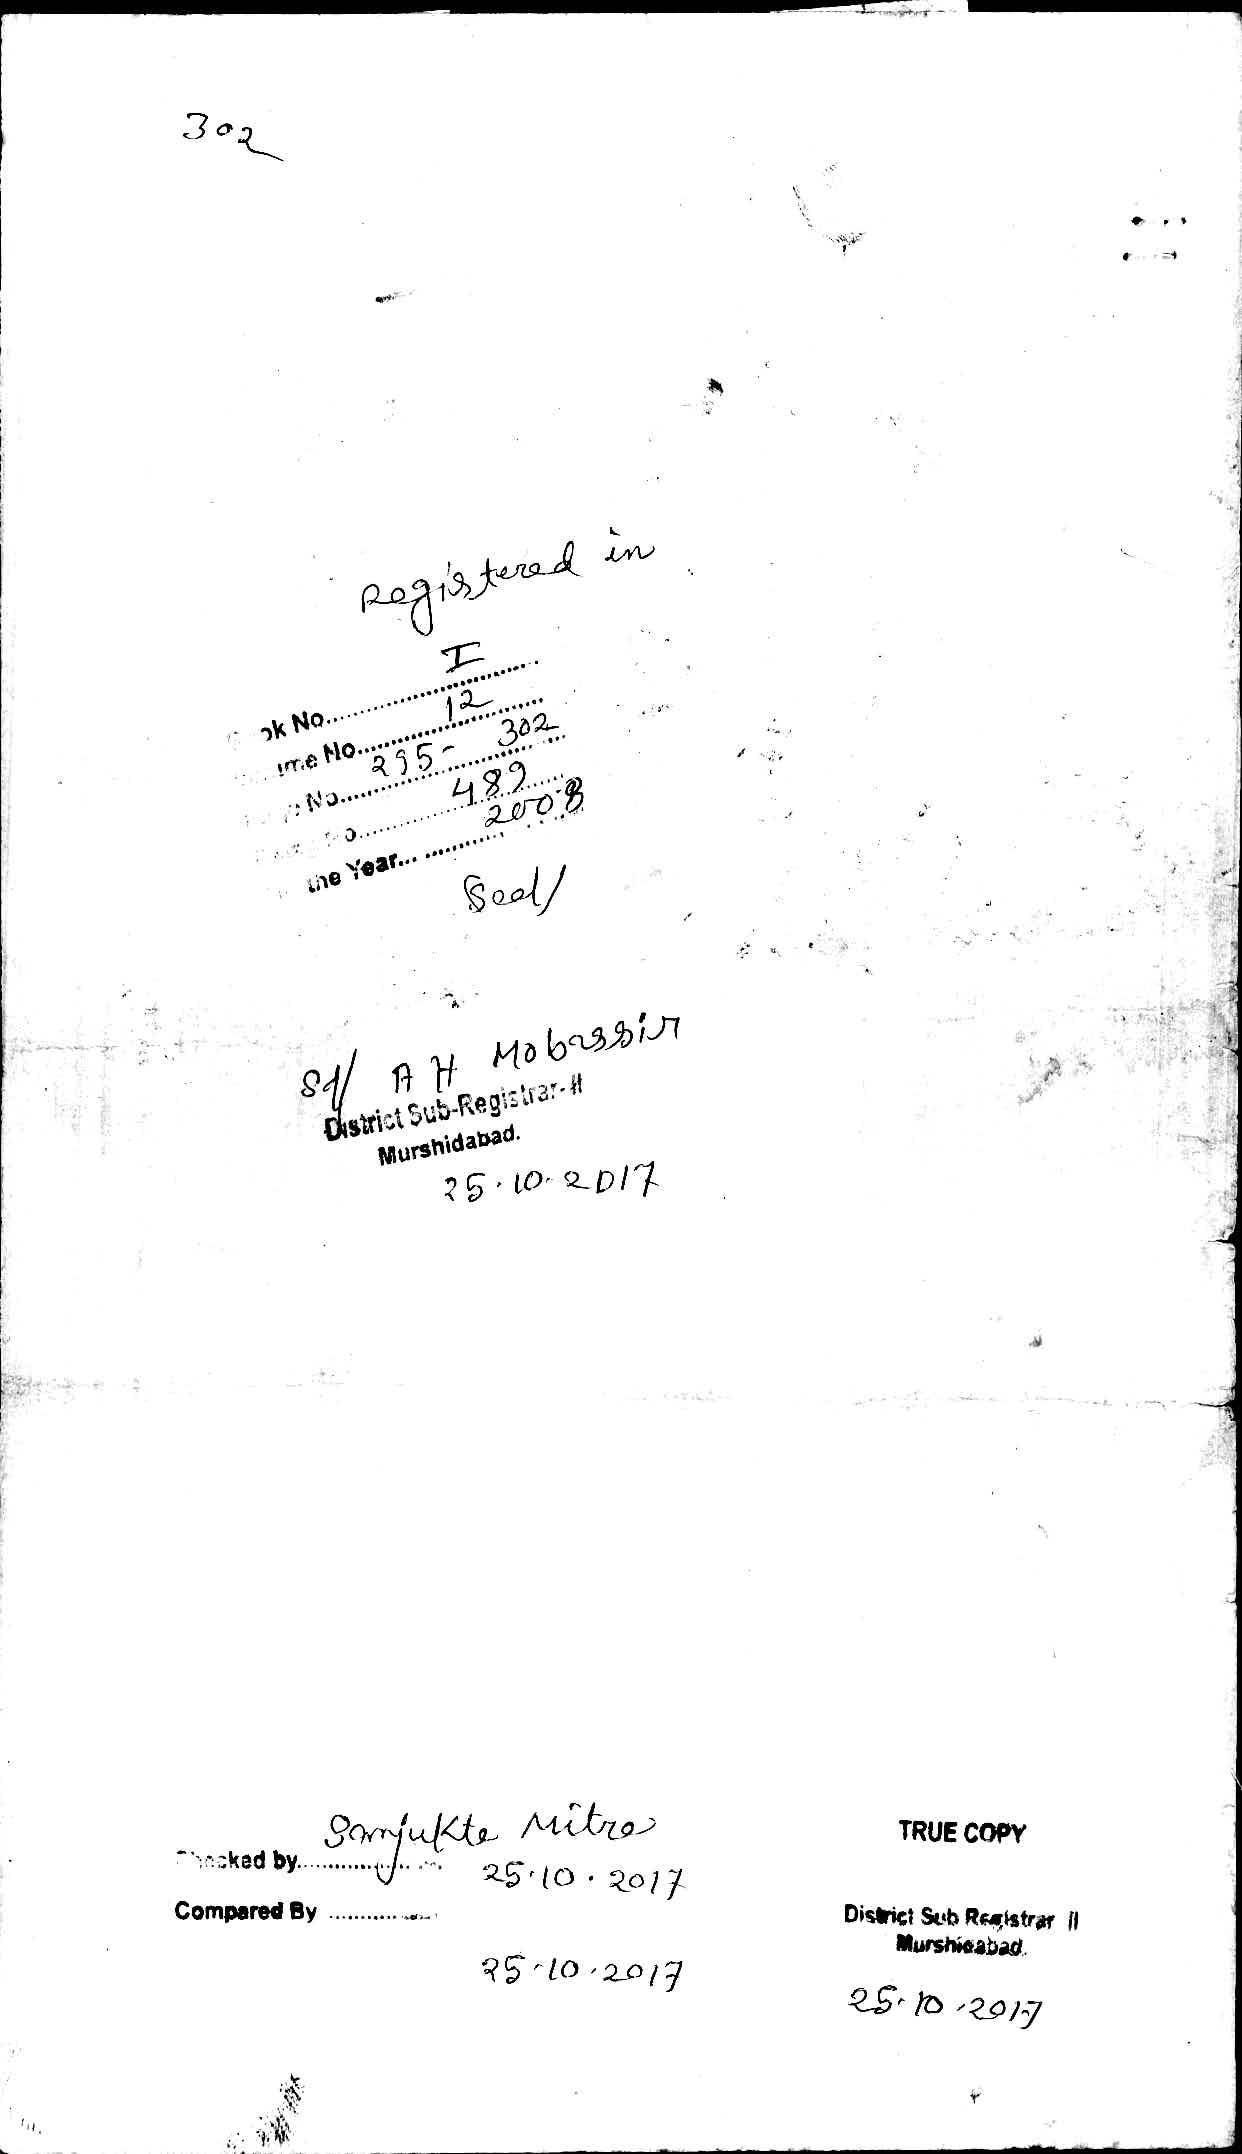 302
Registered in
ok No. I
ume No. 12
No. 295 - 302
No. 489
the Year 2008
Seal/
Sd/ A H Mobassir
District Sub-Registrar-II
Murshidabad.
25.10.2017
Sanjukta Mitra
Checked by
25.10.2017
Compared By
25.10.2017
TRUE COPY
District Sub Registrar II
Murshidabad.
25.10.2017